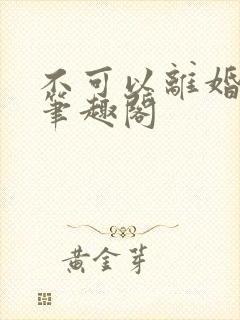 不可以離婚
筆趣閣
黃金芽